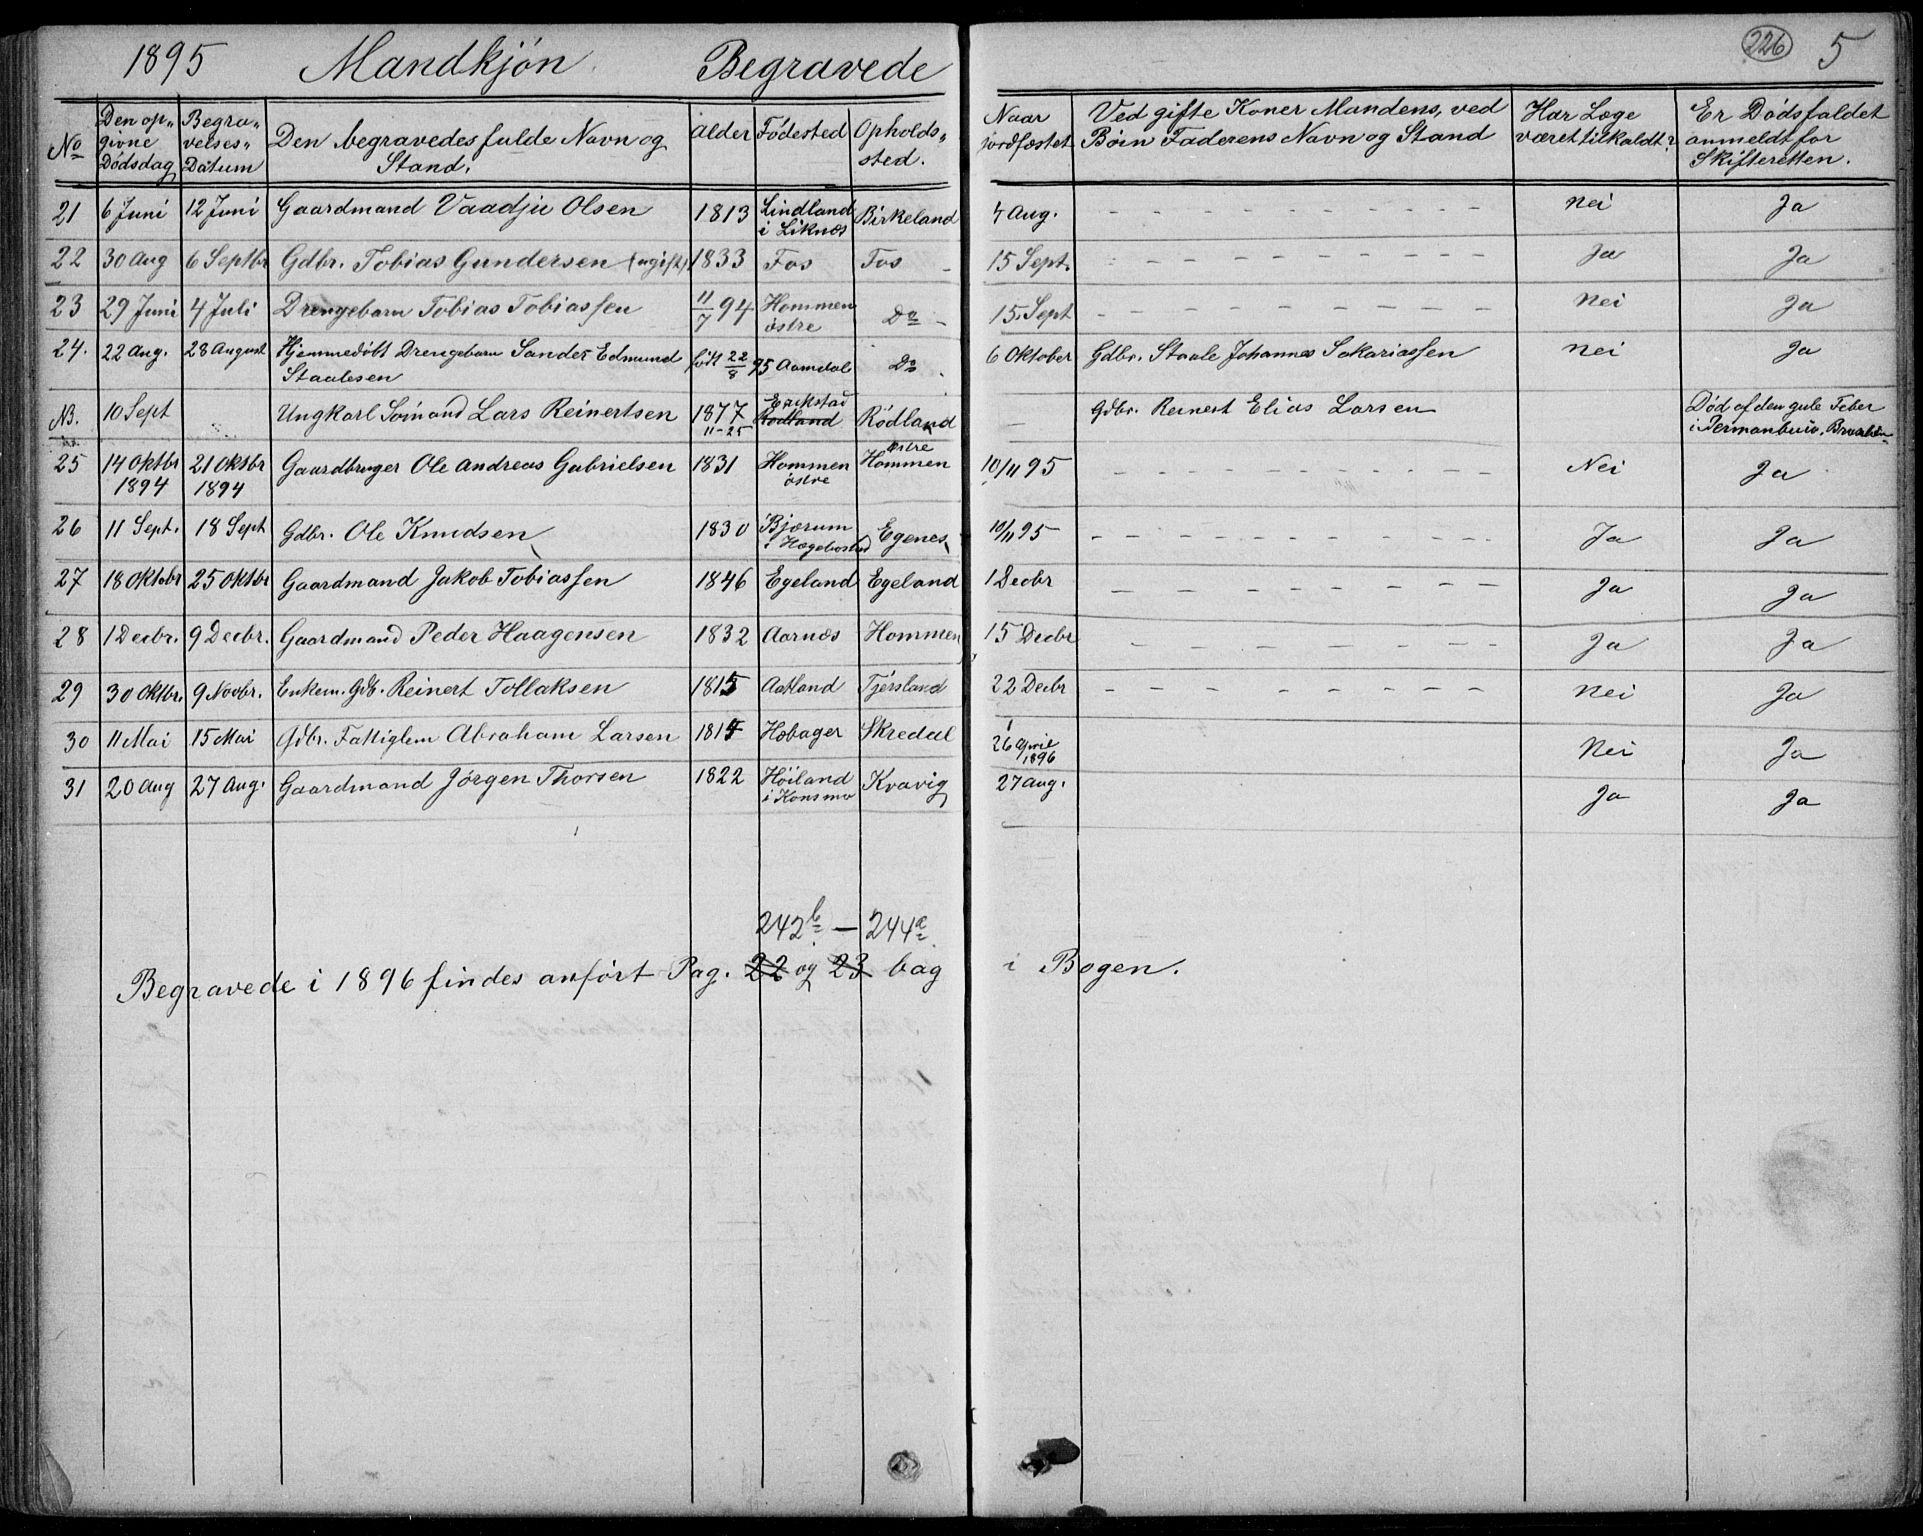 1895 Mandkjön. Begravede 226 5
No Den op- givne Dödsdag Begra- velses- Datum Den begravedes fulde Navn og Stand. Alder Födested Opholds- sted. Naar jordfæstet Ved gifte Koner Mandens, ved Börn Faderens Navn og Stand Har Læge været tilkaldt? Er Dödsfaldet anmeldt for Skifteretten.
21 6 Juni 12 Juni Gaardmand Vaadjie Olsen 1813 Lindland i Liknæs Birkeland 4 Aug. - - - - - - - - - - Nei Ja
22 30 Aug 6 Septbr Gdbr. Tobias Gundersen (ugift) 1833 Fos Fos 15 Sept. - - - - - - - - - Ja Ja
23 29 Juni 4 Juli Drengebarn Tobias Tobiassen 11/7 94 Hommen östre Do 15. Sept - - - - - - - - - - Nei Ja
24. 22 Aug. 28 August Hjemmedöbt Drengebarn Sander Edmund Staalesen födt 22/8 95 Aamdal Do 6 Oktober Gdbr. Staale Johannes Sakariassen Nei Ja
NB. 10 Sept Ungkarl Sömand Lars Reinertsen 1877 11-25 Erikstad Rödland Rödland — Gdbr. Reinert Elias Larsen Död af den gule Feber i Pernanbuco,
25 14 Oktbr 1894 21 Oktbr 1894 Gaardbruger Ole Andreas Gabrielsen 1831 Hommen östre östre Hommen 10/11 95 - - - - - - - - - - Nei Ja
26 11 Sept. 18 Sept Gdbr. Ole Knudsen 1830 Bjærum i Hægebostad Egenes 10/11 95 - - - - - - - - - - Ja Ja
27 18 Oktobr 25 Oktbr Gaardmand Jakob Tobiassen 1846 Egeland Egeland 1 Decbr - - - - - - - - - - Ja Ja
28 1 Decbr. 9 Decbr. Gaardmand Peder Haagensen 1832 Aarnæs Hommen 15 Decbr - - - - - - - - - Ja Ja
29 30 Oktbr. 9 Novbr. Enkem. Gdb. Reinert Tollaksen 1815 Aatland Tjersland 22 Decbr - - - - - - - - - - Nei Ja
30 11 Mai 15 Mai Gdbr. Fattiglem Abraham Larsen 1814 Hobager Skredal 26 April 1896 Nei Ja
31 20 Aug 27 Aug. Gaardmand Jörgen Thorsen 1822 Höiland i Konsmo Kvavig 27 Aug. Ja Ja
242b — 244a.
Begravede i 1896 findes anfört Pag. 22 og 23 bag i Bogen.